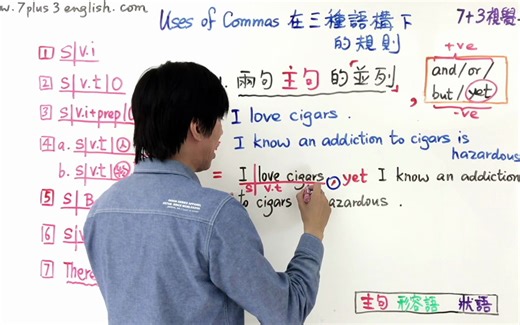 w.7plus3english.com
Uses of Commas 在三種語構下
的規則
7+3視覺
+ve
1 S|v.i
2 S|v.t|O
3 S|v.i+prep|
4 a. S|v.t|人
b. S|v.t|物
5 S|B
6 S|v
7 There
兩句主句的並列
,
and/or/
but/yet
-ve
I love cigars.
I know an addiction to cigars is
hazardous
= I love cigars, yet I know an addiction
S v.t
to cigars hazardous.
主句 形容語 狀語